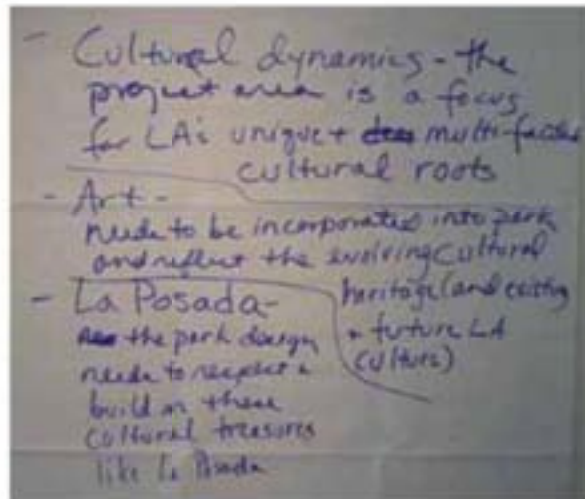 - Cultural dynamics - the
project area is a focus
for LA's unique + multi-faceted
cultural roots
- Art -
needs to be incorporated into park
and reflect the evolving cultural
heritage (and existing
+ future LA
culture)
- La Posada -
the park design
needs to respect &
build on these
cultural treasures
like La Posada